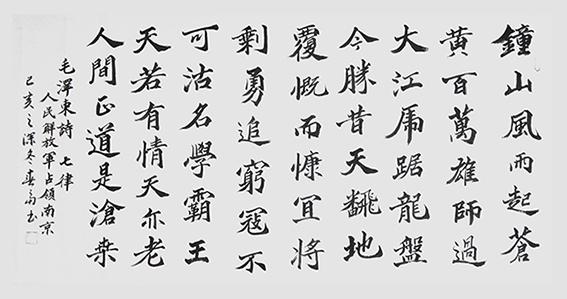 鐘山風雨起蒼
黄百萬雄師過
大江虎踞龍盤
今勝昔天飜地
覆慨而慷宜將
剩勇追窮寇不
可沽名學霸王
天若有情天亦老
人間正道是滄桑
毛澤東詩 七律
人民解放軍占領南京
己亥之深冬